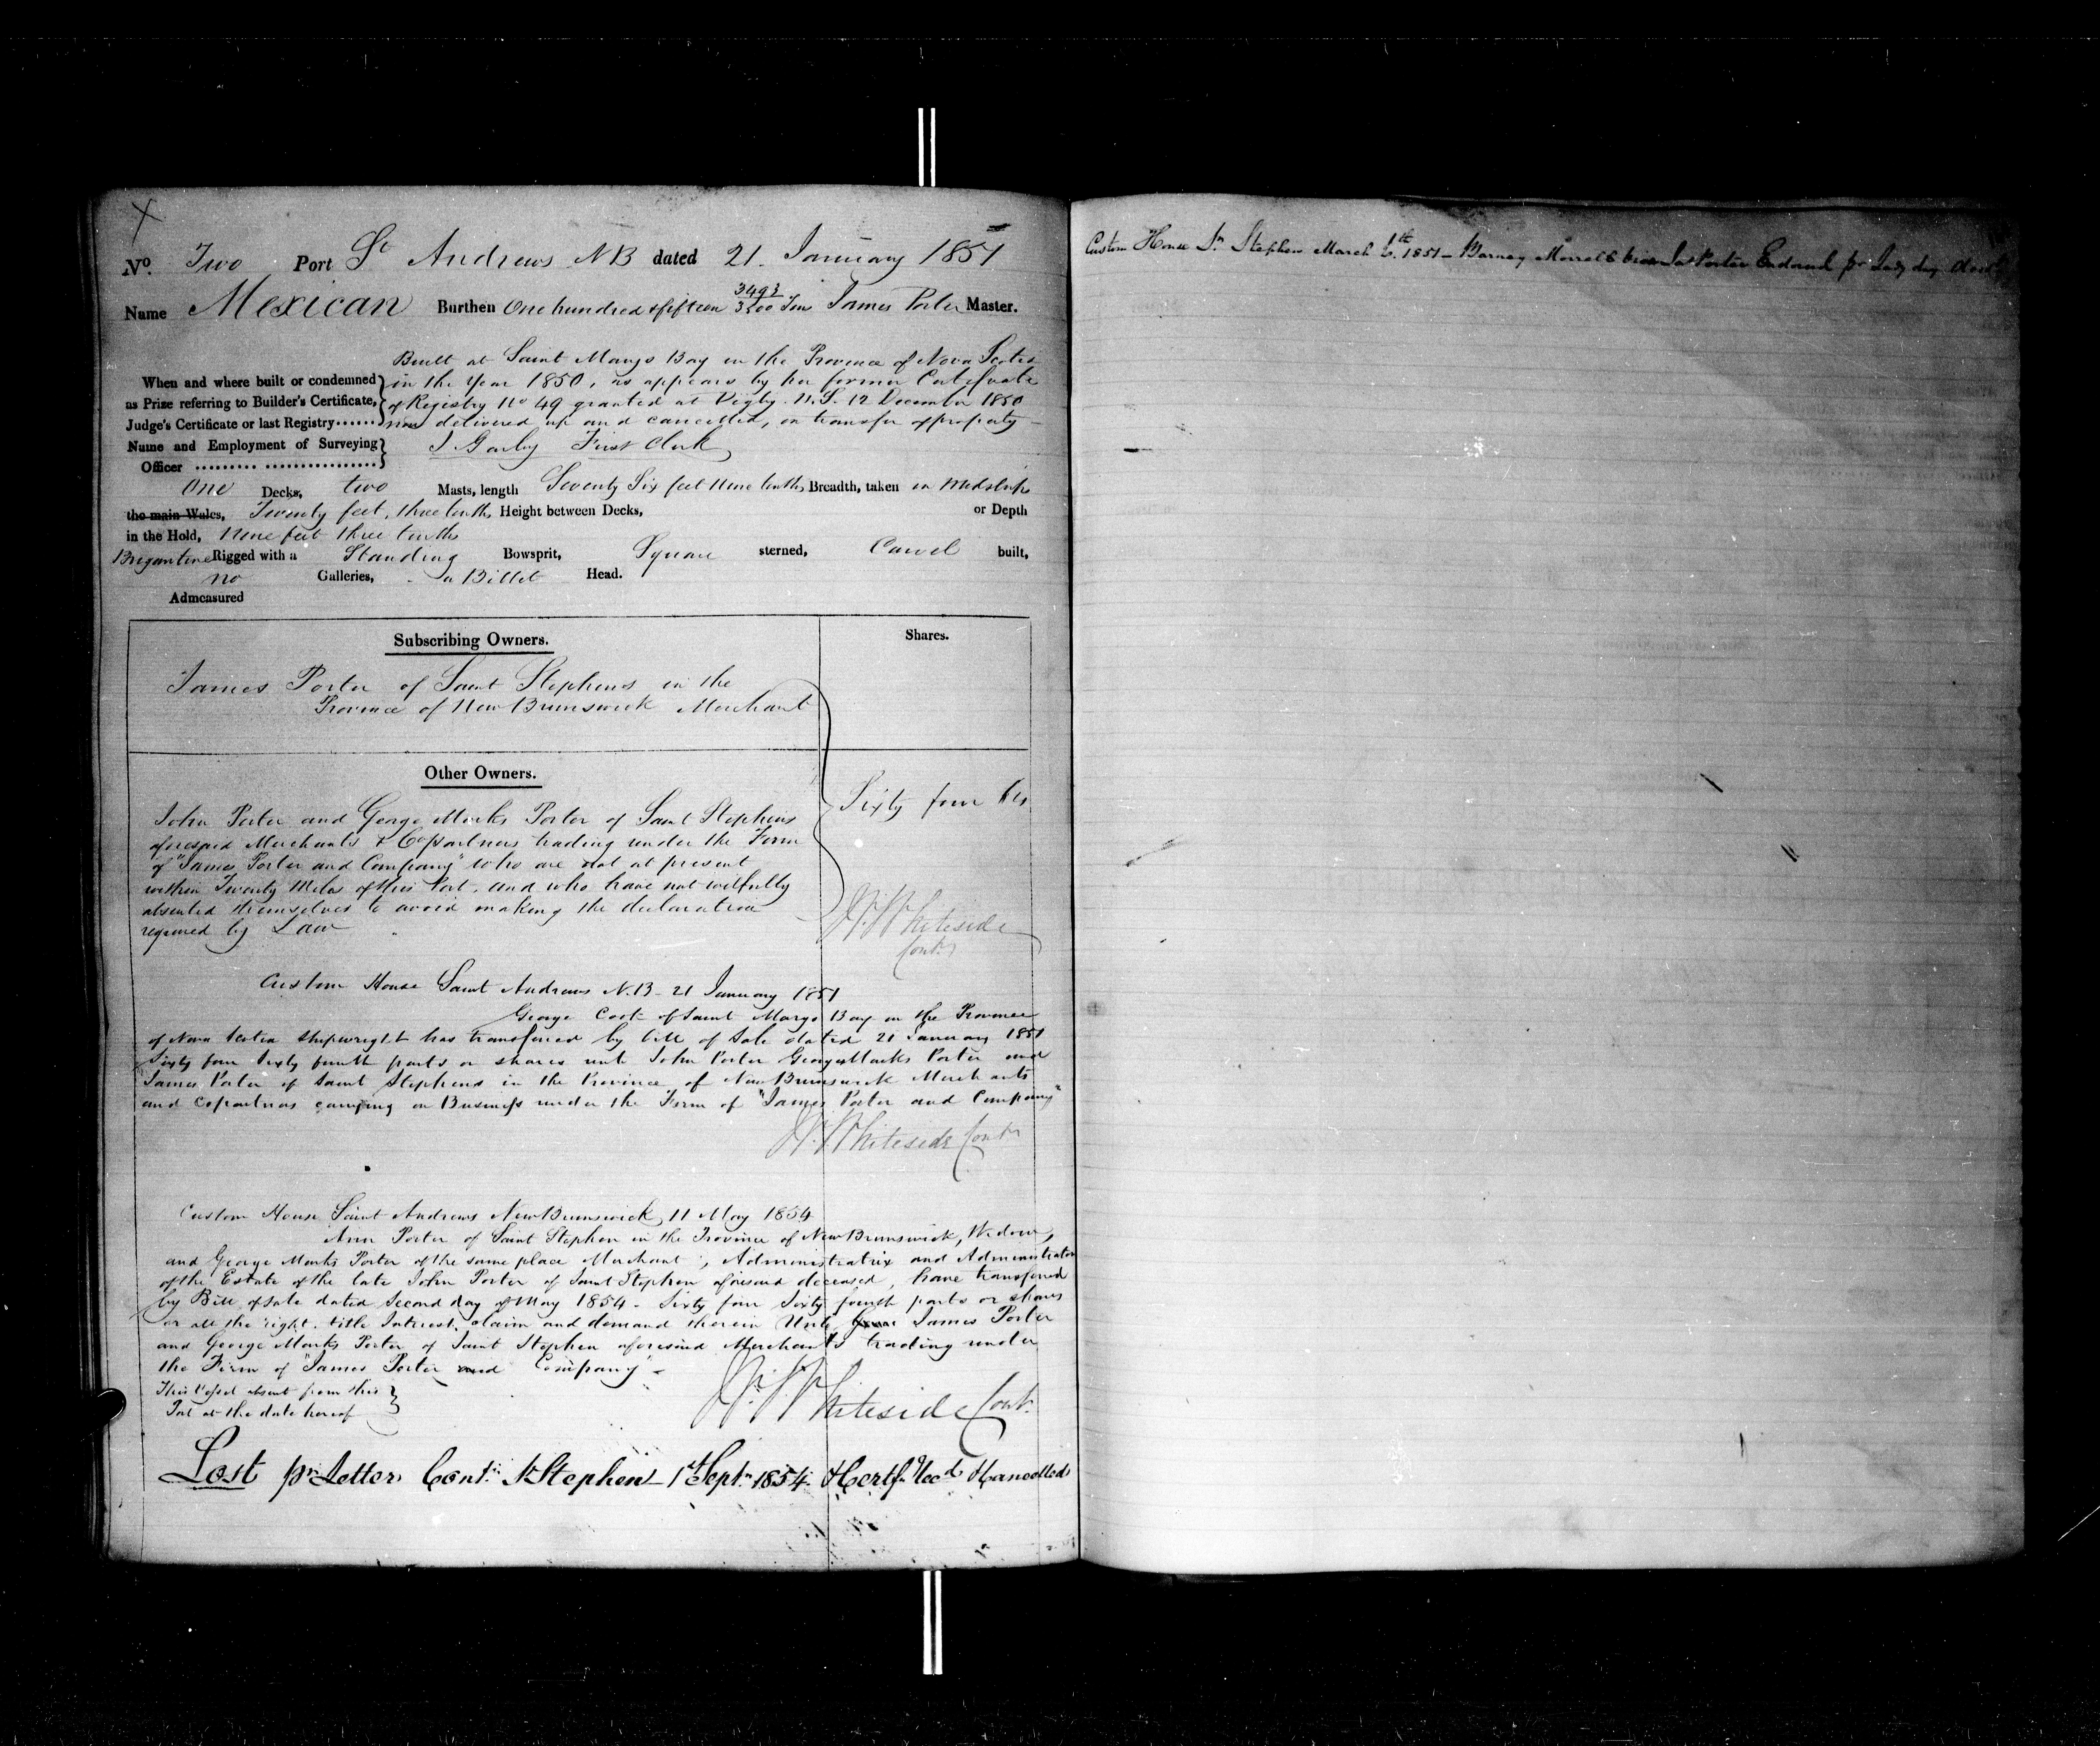 No. Two Port St Andrews NB dated 21 January 1851
Name Mexican Burthen One hundred & fifteen 3493/3500 Tons James Porter Master.
Built at Saint Marys Bay in the Province of Nova Scotia
When and where built or condemned in the Year 1850, as appears by her former Certificate
as Prize referring to Builder's Certificate, of Registry No 49 granted at Digby. N.S. 12 December 1850
Judge's Certificate or last Registry...... now delivered up and cancelled, on transfer of property
Name and Employment of Surveying First Clerk
Officer ......... ................
One Decks, two Masts, length Seventy Six feet Nine tenths Breadth, taken in Midships
the main Wales, Twenty feet, three tenths Height between Decks, or Depth
in the Hold, Nine feet three tenths
Brigantine Rigged with a Standing Bowsprit, Square sterned, Carvel built,
no Galleries, a Billet Head.
Admeasured
Subscribing Owners. Shares.
James Porter of Saint Stephens in the
Province of New Brunswick Merchant
Other Owners.
Sixty four
John Porter and George Marks Porter of Saint Stephens
aforesaid Merchants & Copartners trading under the Firm
of "James Porter and Company" who are not at present
within Twenty Miles of this Port, and who have not wilfully
absented themselves to avoid making the declaration
required by Law
Whiteside
Cont.
Custom House Saint Andrews N.B. 21 January 1851
George Cook of Saint Marys Bay in the Province
of Nova Scotia Shipwright has transferred by bill of Sale dated 21 January 1851
Sixty four Sixty fourth parts or shares unto John Porter George Marks Porter and
James Porter of Saint Stephens in the Province of New Brunswick Merchants
and Copartners carrying on Business under the Firm of "James Porter and Company"
Whiteside Contr
Custom House Saint Andrews New Brunswick 11 May 1854
Ann Porter of Saint Stephen in the Province of New Brunswick, Widow,
and George Marks Porter of the same place Merchant, Administratrix and Administrator
of the Estate of the late John Porter of Saint Stephen aforesaid deceased, have transferred
by Bill of Sale dated Second day of May 1854 - Sixty four Sixty fourth parts or shares
or all the right, title Interest, claim and demand therein Unto James Porter
and George Marks Porter of Saint Stephen aforesaid Merchants trading under
the Firm of "James Porter and Company" -
This Vessel absent from this
Port at the date hereof
Whiteside Cont.
Lost pr Letter Cont. St Stephen 1st Sept. 1854 Certf. Recd & Cancelled
Custom House St. Stephen March 6th 1851 - Barney Morrell Porter Endorsed pr